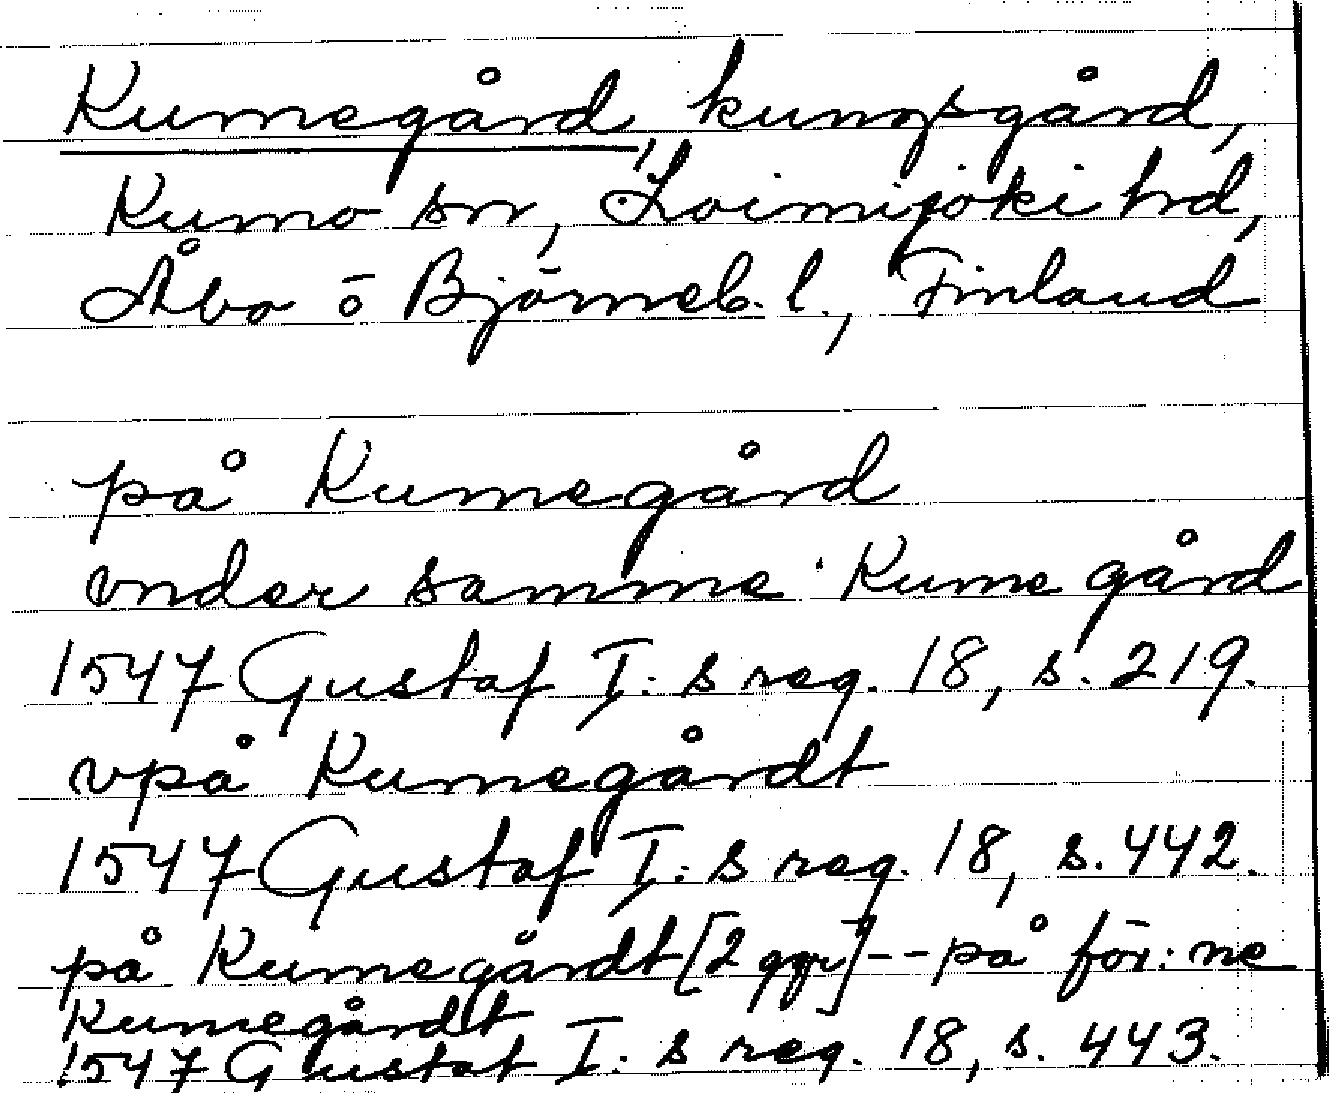 Kumegård, kungsgård,
Kumo sn, Loimijoki hd,
Åbo o Björneb. l., Finland
på Kumegård
vnder samme Kume gård
1547 Gustaf I:s reg. 18, s. 219.
vpå Kumegårdt
1547 Gustaf I:s reg. 18, s. 442.
på Kumegårdt [2 ggr] -- på för:ne
Kumegårdt
1547 Gustaf I:s reg. 18, s. 443.